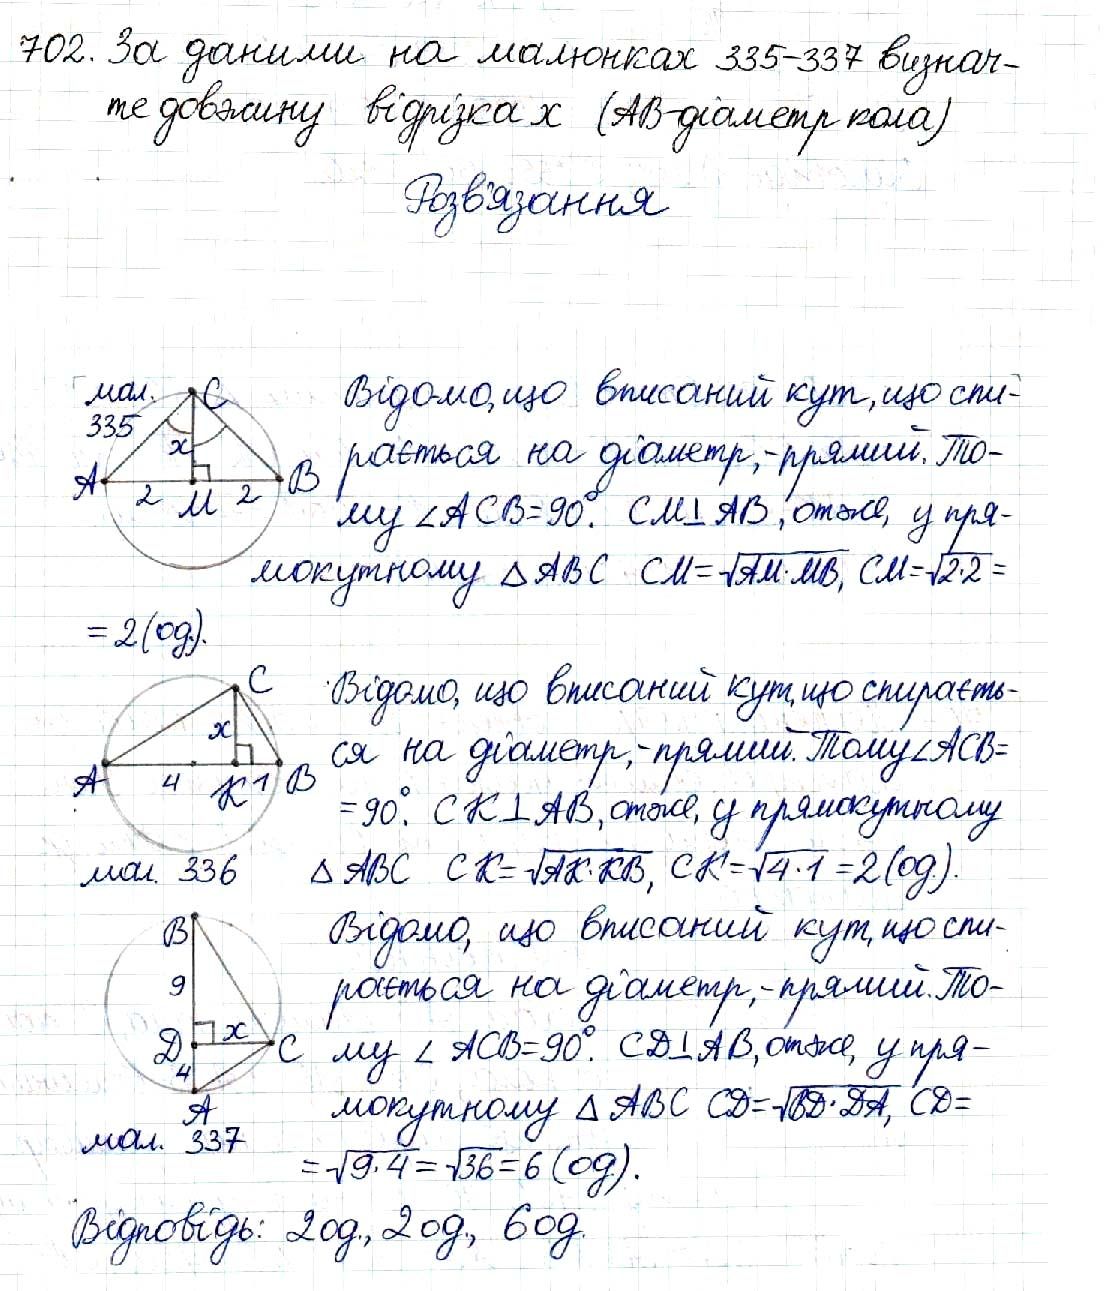 702. За даними на малюнках 335-337 визнач-
те довжину відрізка x (AB-діаметр кола)
Розв'язання
мал.
335
C
x
A
2
M
2
B
Відомо, що вписаний кут, що спи-
рається на діаметр,-прямий. То-
му ∠ACB=90°. CM⊥AB, отже, у пря-
мокутному △ABC CM=√AM·MB, CM=√2·2=
=2(од).
C
x
A
4
K
1
B
мал. 336
Відомо, що вписаний кут, що спираєть-
ся на діаметр,-прямий. Тому ∠ACB=
=90°. CK⊥AB, отже, у прямокутному
△ABC CK=√AK·KB, CK=√4·1=2(од).
B
9
D
x
C
4
A
мал. 337
Відомо, що вписаний кут, що спи-
рається на діаметр,-прямий. То-
му ∠ACB=90°. CD⊥AB, отже, у пря-
мокутному △ABC CD=√BD·DA, CD=
=√9·4=√36=6(од).
Відповідь: 2од., 2од., 6од.